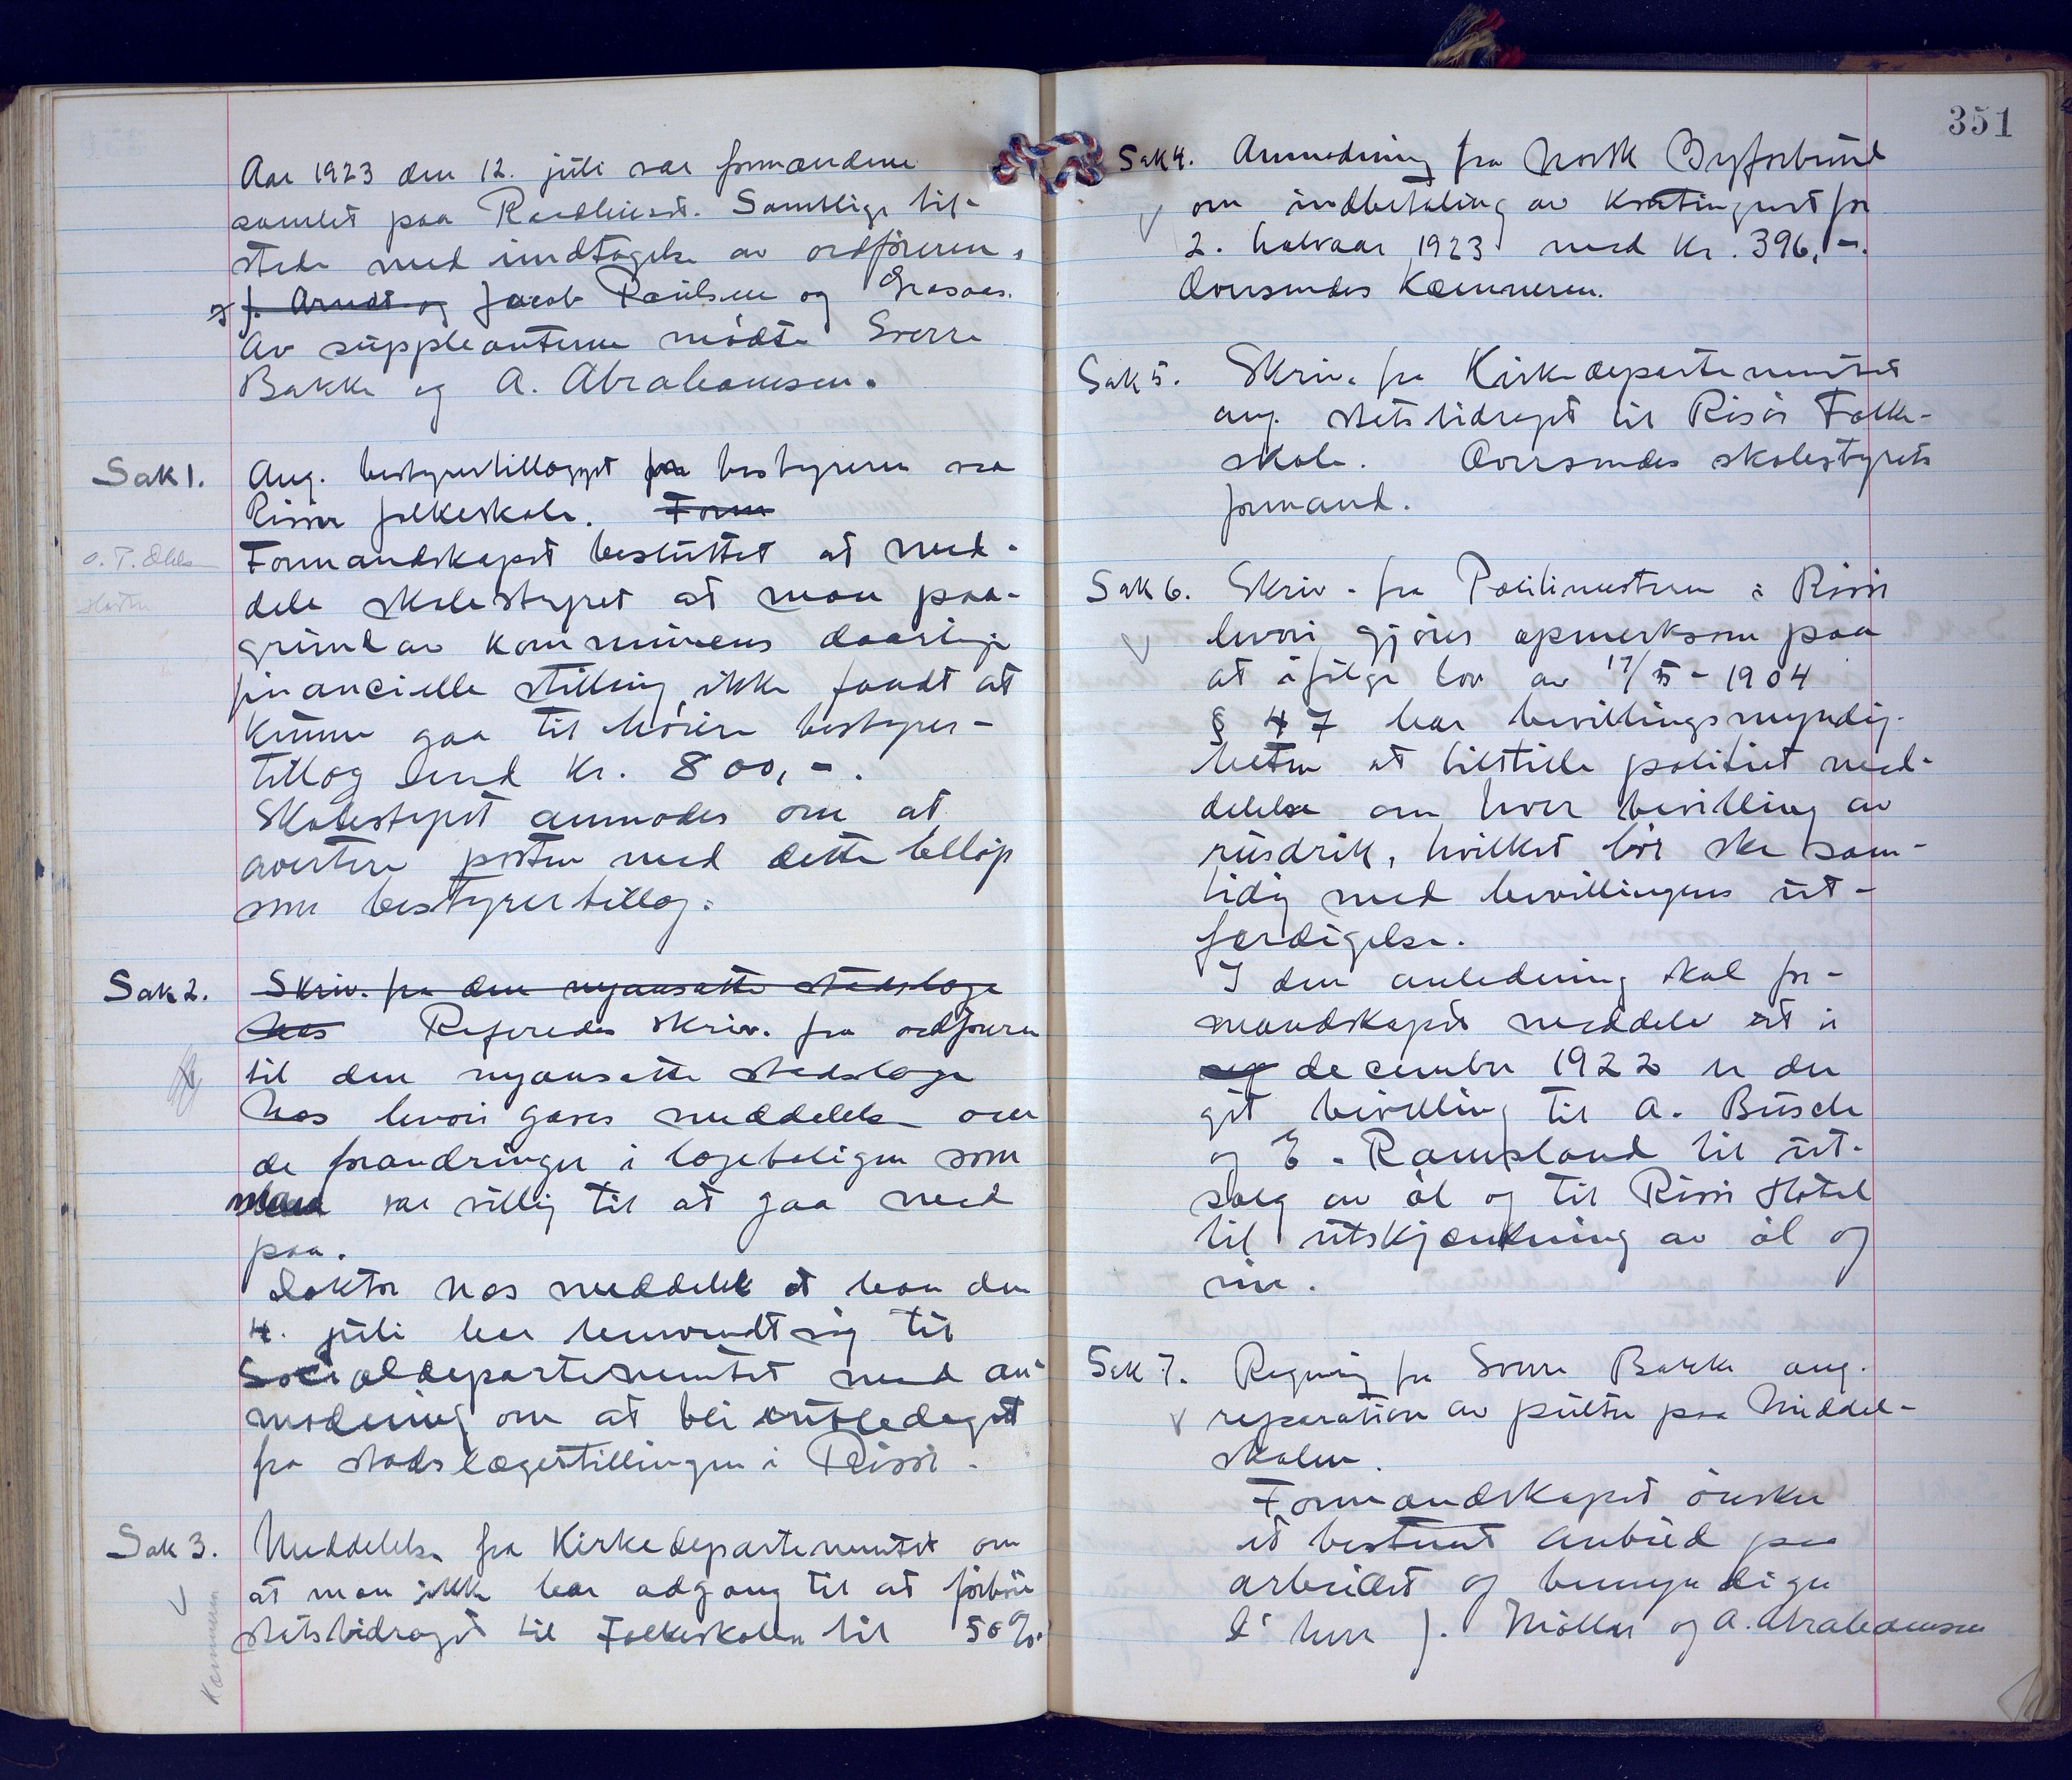 Aar 1923 den 12. juli var formændene
samlet paa Raadhuset. Samtlige til-
stede med undtagelse av ordføreren,
J. Arndt og Jacob Paulsen og Grasaas.
Av suppleanterne mødte Sverre
Bakke og A. Abrahamsen.
Sak 1. Ang. bestyrertillægget for bestyreren ved
Risør folkeskole. Form
Formandskapet besluttet at med-
dele skolestyret at man paa-
grund av kommunens daarlige
financielle stilling ikke fandt at
kunne gaa til høiere bestyrer-
tillæg end Kr. 800,-.
Skolestyret anmodes om at
avertere posten med dette beløp
som bestyrertillæg.
Sak 2. Skriv. fra den nyansatte stadslæge
Næs Referedes skriv. fra ordføreren
til den nyansatte stadslæge
Næs hvori gaves meddelelse om
de forandringer i lægeboligen som
man var villig til at gaa med
paa.
Doktor Næs meddelte at han den
4. juli har henvendt sig til
Socialdepartementet med an-
modning om at bli entlediget
fra stadslægestillingen i Risør.
Sak 3. Meddelelse fra Kirkedepartementet om
at man ikke har adgang til at forhøie
statsbidraget til Folkeskolen til 50%.
Kæmneren
351
Sak 4. Anmodning fra Norsk Byforbund
om indbetaling av kontingent for
2. halvaar 1923 med Kr. 396,-.
Oversendes Kæmneren.
Sak 5. Skriv. fra Kirkedepartementet
ang. statsbidraget til Risør Folke-
skole. Oversendes skolestyrets
formand.
Sak 6. Skriv. fra Politimesteren i Risør
hvori gjøres opmerksom paa
at ifølge lov av 17/5-1904
§ 47 har bevillingsmyndig-
heten at tilstille politiet med-
delelse om hver bevilling av
rusdrik, hvilket bør ske sam-
tidig med bevillingens ut-
færdigelse.
I den anledning skal for-
mandskapet meddele at i
december 1922 er der
git bevilling til A. Busch
og E. Ramsland til ut-
salg av øl og til Risør Hotel
til utskjænkning av øl og
vin.
Sak 7. Regning fra Sverre Bakke ang.
reparation av pulter paa Middel-
skolen.
Formandskapet ønsker
et bestemt anbud paa
arbeidet og bemyndiger
d' herr J. Møller og A. Abrahamsen